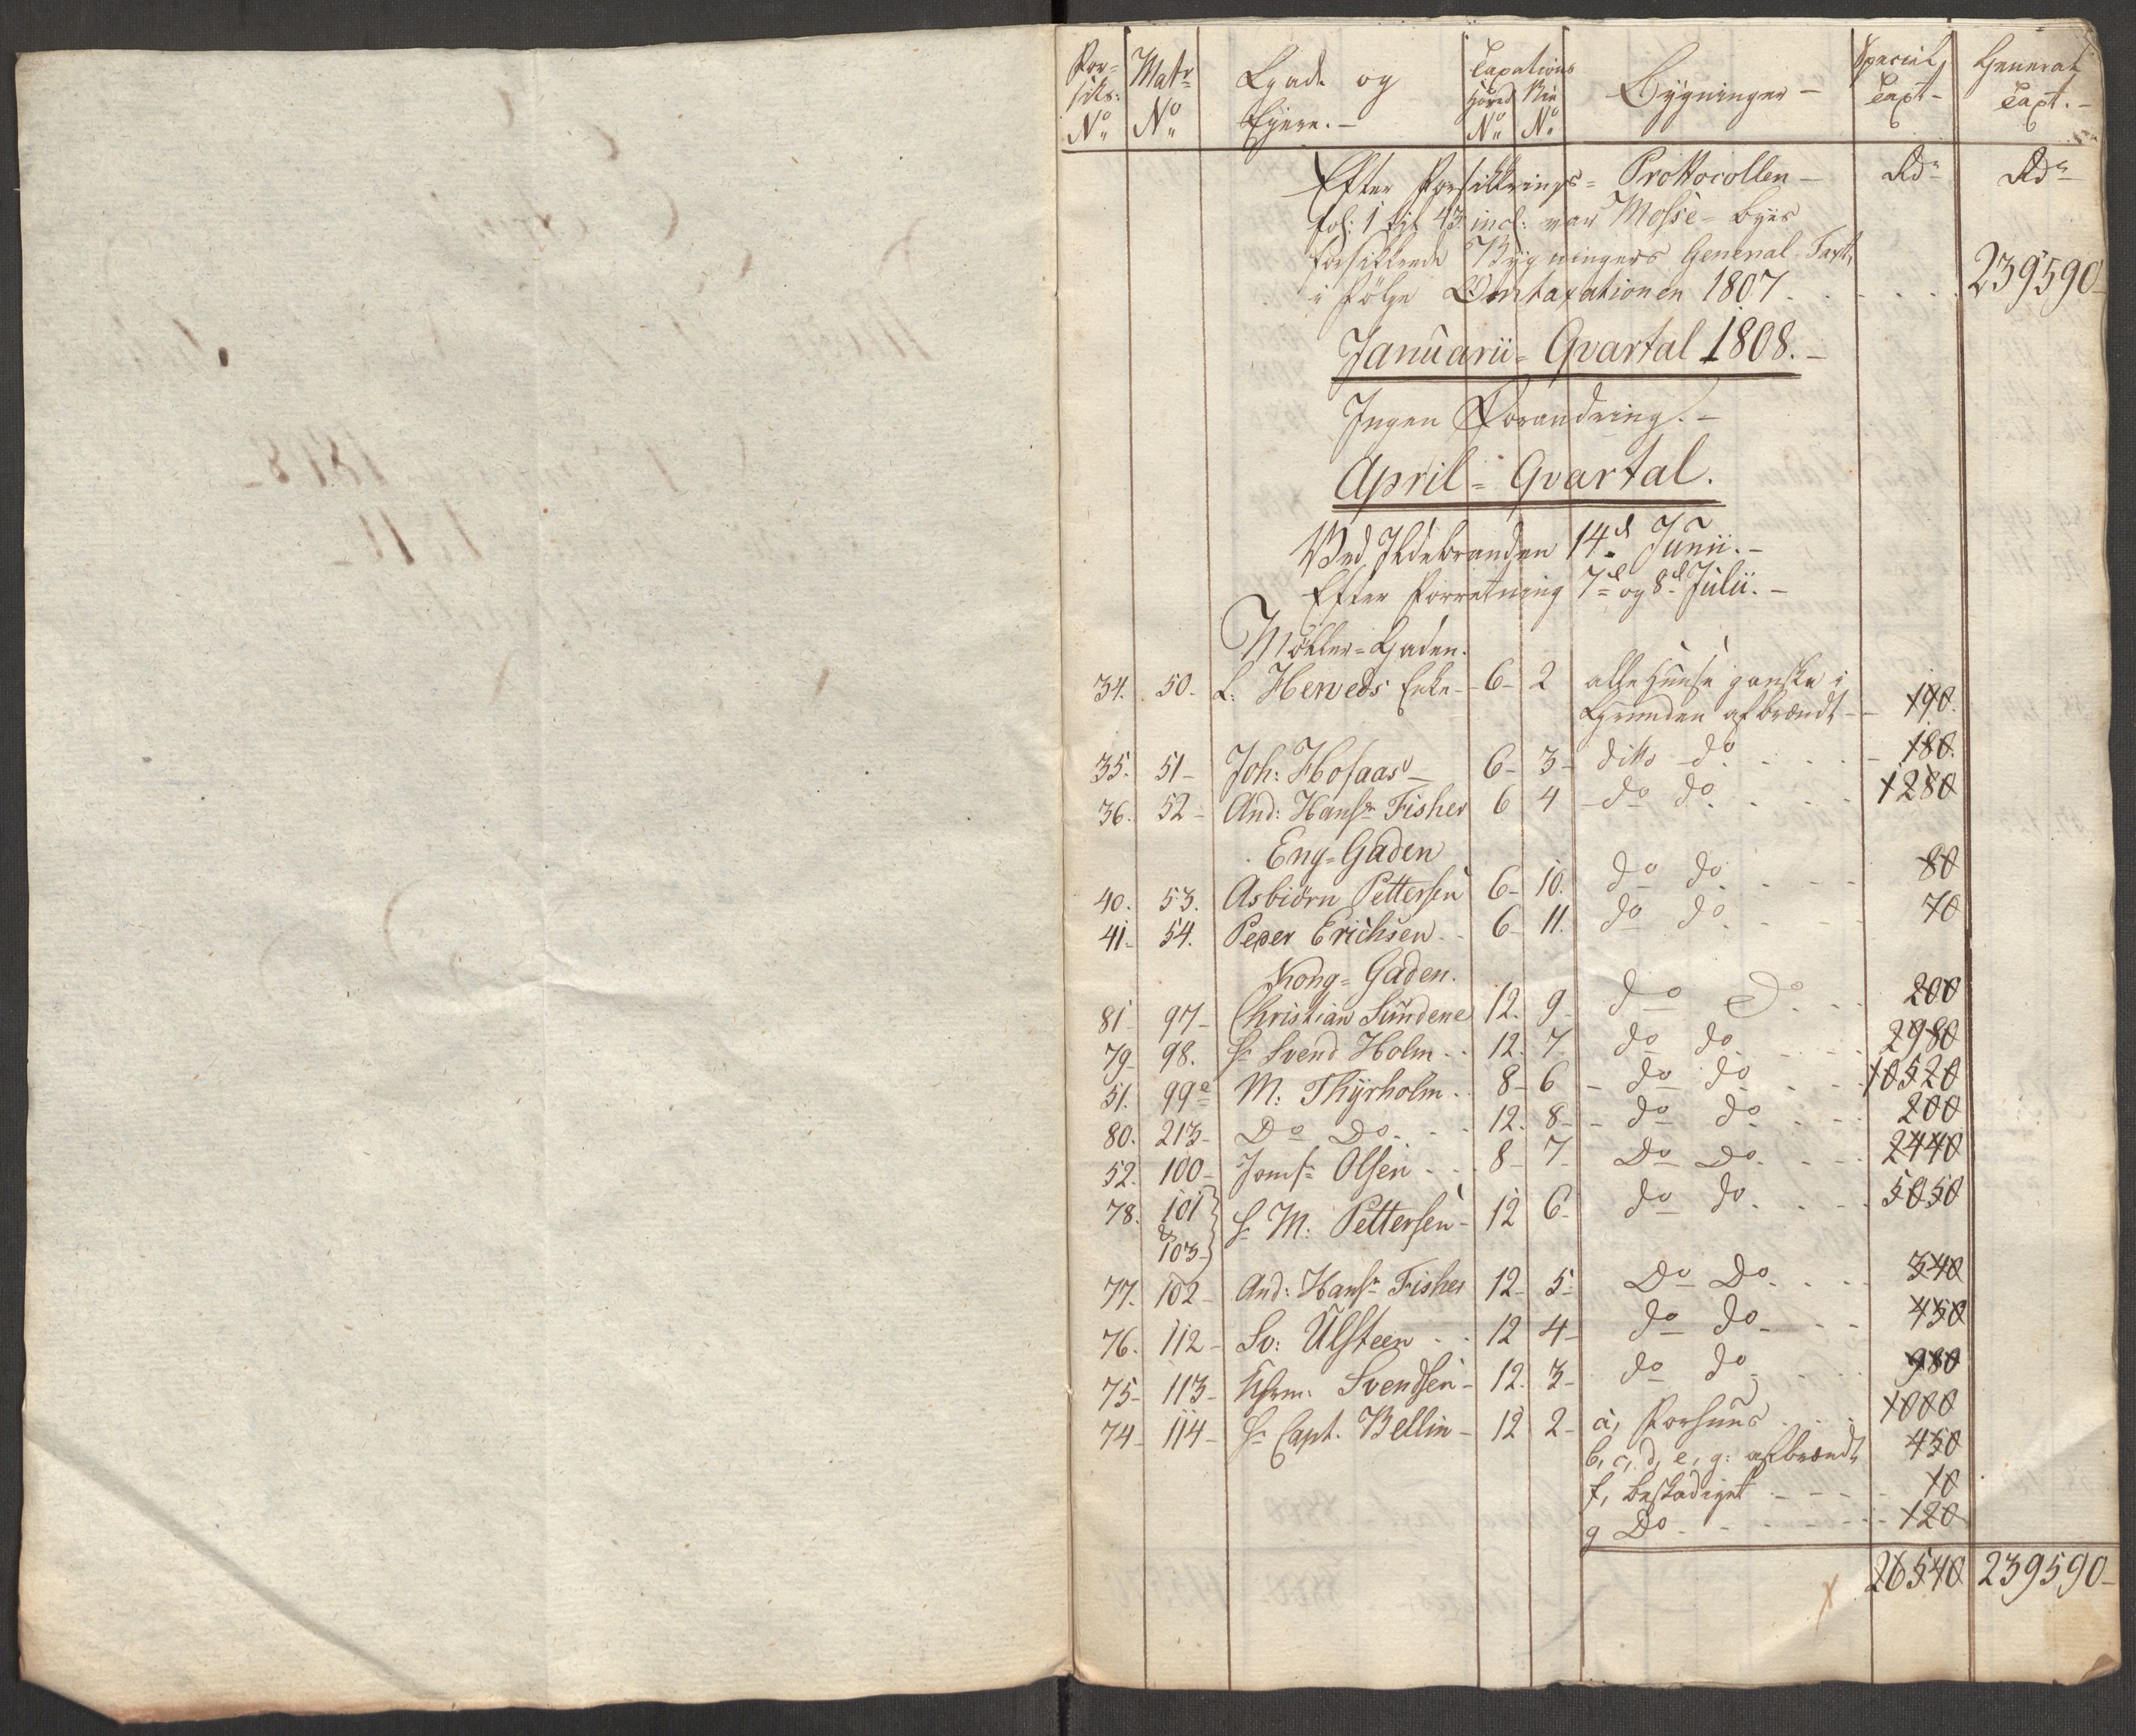 For= Matr Gade og Taxations Bygninger – Special General
sikr: Hoved Nie Taxt – Taxt. –
No No Eyere. – No No
Efter Forsikkrings= Prottocollen – Rdr Rdr
fol: 1 til 43 incl: var Mosse= Byes
forsikkrede Bygningers General Taxt,
i følge Omtaxationen 1807 . . . . . 239590 –
Januarii= Qvartal 1808. –
Ingen Forandring. –
April= Qvartal.
Ved Ildebranden 14d Junii. –
Efter Forretning 7d og 8d Julii. –
Møller=Gaden.
34. 50. L: Herveds Enke – 6 – 2 alle Huuse ganske i
Grunden afbrændt – 190.
35. 51 – Joh: Hofaas – 6 – 3 – dito do . . . . – 180.
36. 52 – And: Hansn Fisher 6 4 – do do . . . . 1280
Eng=Gaden
40. 53. Asbiørn Pettersen 6 – 10. do do . . – – 80
41 – 54. Peder Erichsen . . 6 – 11. do do . – – 70
Kong=Gaden.
81 – 97 – Christian Sundene 12. 9 – do do . . . 200
79 – 98. Hr Svend Holm . . 12. 7 do do . . . . 2980
51. 99a M: Thyrholm . . 8 – 6 – do do . . . 10520
80. 213 – Do Do . . . 12. 8 – – do do . . . 200
52. 100 – Jomfr Olsen . . . 8 – 7 – Do Do . . . 2440
78. 101 } Hr M: Pettersen – 12 6 – do do . . . 5050
&
103 – }
77. 102 – And: Hansn Fisher 12 – 5 – Do Do . . . 340
76. 112 – Sv: Ulsteen . . 12 4 – do do – . . – 450
75 – 113 – Chrm. Svendsen – 12. 3 – do do . . . . 980
74 – 114 – Hr Capt. Bellin – 12 2 – a, Forhuus . . . 1000
b, c, d, e, g: afbrændt, 450
f, beskadiget – – – – 10
g Do – – – – – – 120
26540 239590 –